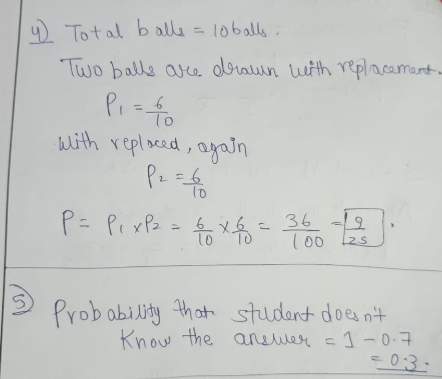 4) Total balls = 10 balls.
Two balls are drawn with replacement.
P₁ = 6/10
With replaced, again
P₂ = 6/10
P = P₁ x P₂ = 6/10 x 6/10 = 36/100 = 9/25.
5) Probability that student doesn't
Know the answer = 1 - 0.7
= 0.3.